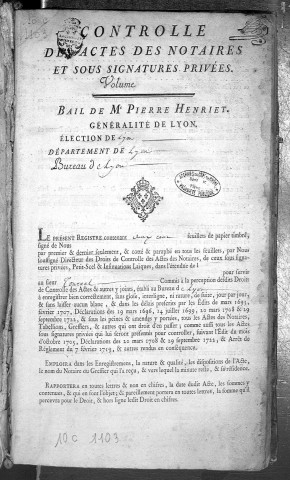 CONTROLLE
DES ACTES DES NOTAIRES
ET SOUS SIGNATURES PRIVÉES.
Volume
BAIL DE Me PIERRE HENRIET.
GÉNÉRALITÉ DE LYON.
ÉLECTION DE Lyon
DÉPARTEMENT DE Lyon
Bureau de Lyon
LE PRÉSENT REGISTRE contenant cinq cens feuillets de papier timbré,
signé de Nous
par premier & dernier seulement, & cotté & paraphé en tous ses feuillets, par Nous
soussigné Directeur des Droits de Controlle des Actes des Notaires, de ceux sous signatures
privées, Petit-Scel & Insinuations Laïques, dans l'étendue de l
pour servir
au sieur Commis à la perception desdits Droits
de Controlle des Actes & autres y joints, établi au Bureau de Lyon
à enregistrer bien correctement, sans glose, interligne, ni rature, de suite, jour par jour,
& sans laisser aucun blanc, & dans les délais prescrits par les Edits de mars 1693,
février 1707, Déclarations des 19 mars 1696, 14 juillet 1699, 20 mars 1708 & 29
septembre 1722, & sous les peines & amendes y portées, tous les Actes des Notaires,
Tabellions, Greffiers, & autres qui ont droit d'en passer; comme aussi tous les Actes
sous signatures privées qui lui seront présentés pour controller, suivant l'Edit de mois
d'octobre 1705, Déclarations des 20 mars 1708 & 29 septembre 1722, & Arrêt de
Réglement du 7 février 1719, & autres rendus en conséquence.
EMPLOIRA dans les Enregistremens, la nature & qualité, les dispositions de l'Acte,
le nom du Notaire ou Greffier qui l'a reçu, & vers lequel la minute reste, & sa résidence.
RAPPORTERA en toutes lettres & non en chifres, la date dudit Acte, les sommes y
contenues, & qui en sont l'objet; & pareillement portera en toutes lettres, la somme qu'il
percevra pour le Droit, & hors ligne ledit Droit en chifres.
10 C 1103